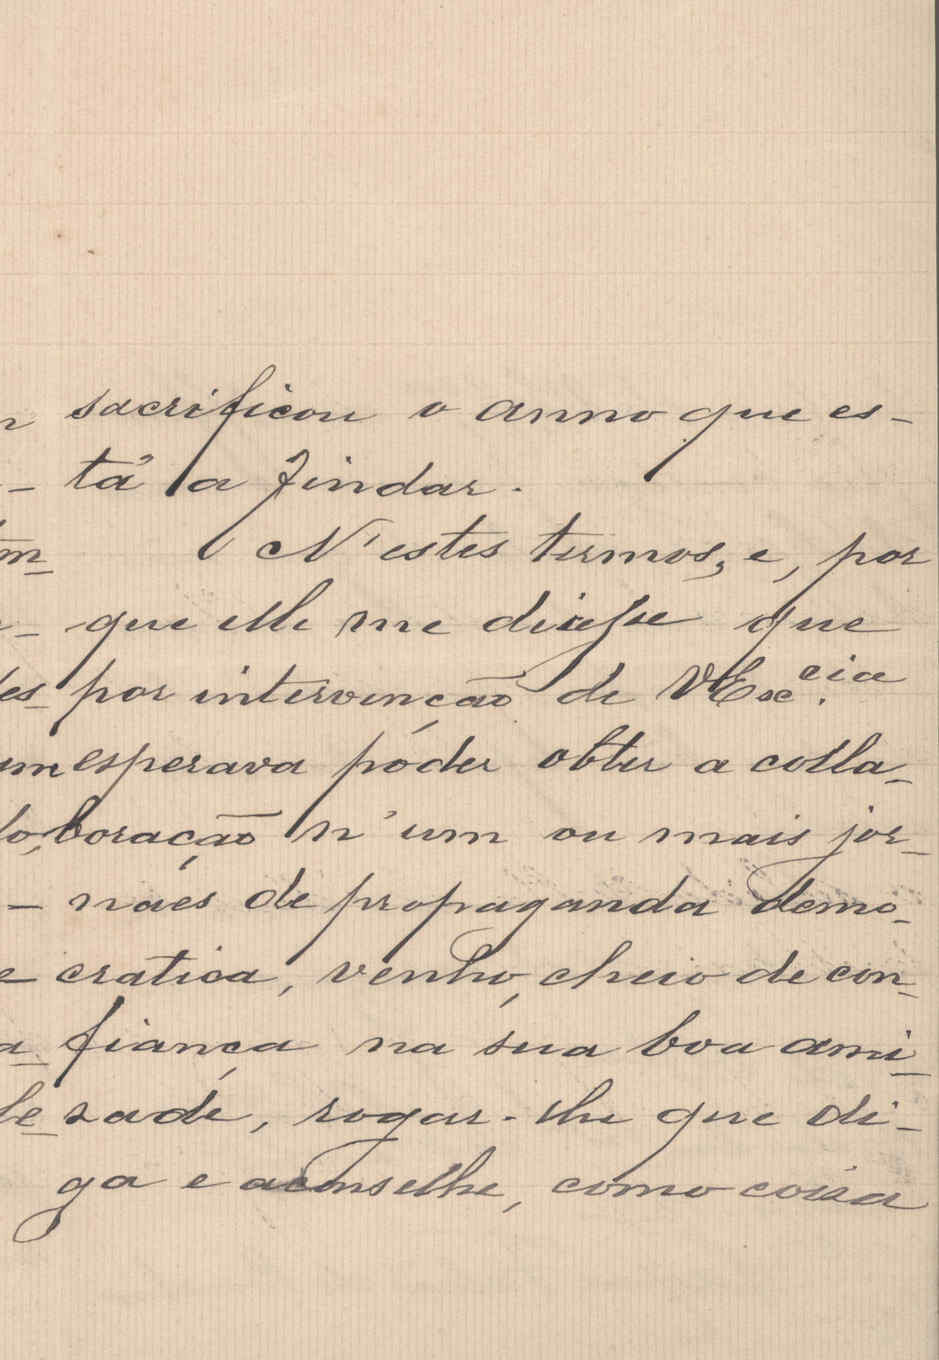 sacrificou o anno que es-
tá a findar.
N'estes termos, e, por
que elle me disesse que
por intervenção de VExc.cia
esperava póder obter a colla-
boração n'um ou mais jor-
náes de propaganda demo-
cratica, venho, cheio de con-
fiança na sua boa ami-
sade, rogar-lhe que di-
ga e aconselhe, como coisa